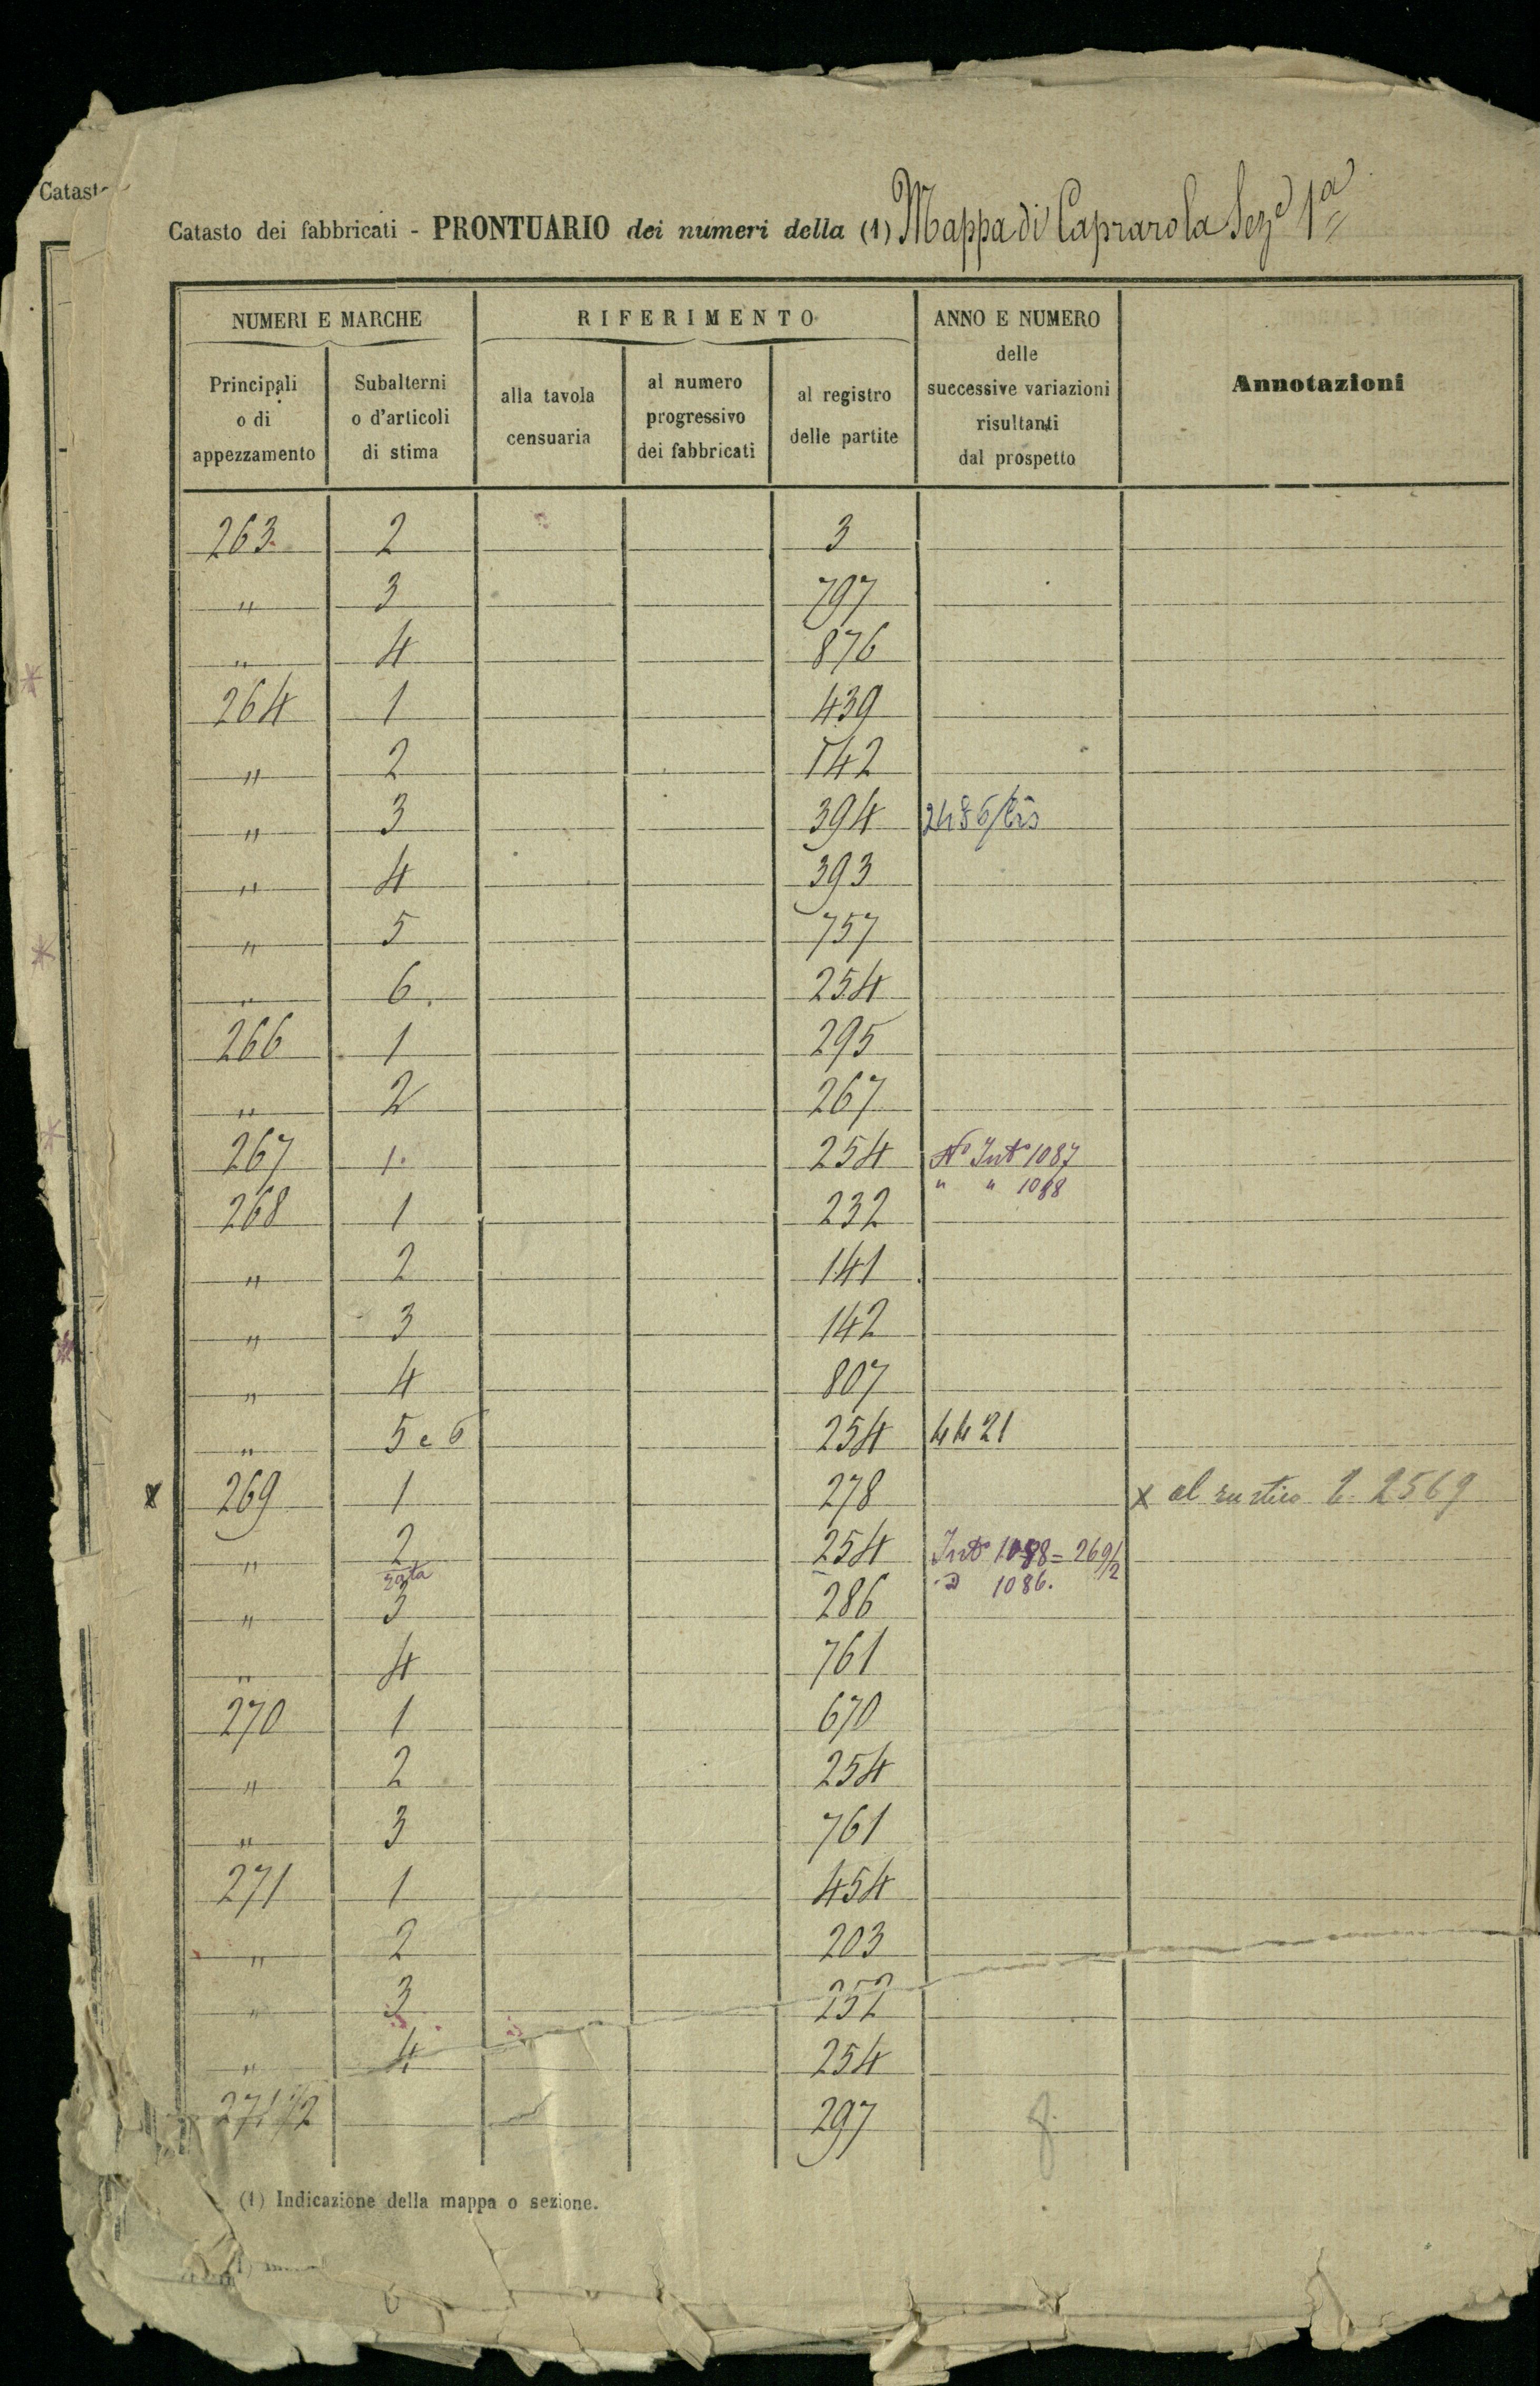 Catasto
Catasto dei fabbricati - PRONTUARIO dei numeri della (1) Mappa di Caprarola Sez.e 1a
NUMERI E MARCHE RIFERIMENTO ANNO E NUMERO delle successive variazioni risultanti dal prospetto Annotazioni
Principali o di appezzamento Subalterni o d'articoli di stima alla tavola censuaria al numero progressivo dei fabbricati al registro delle partite
263 2 3
" 3 797
" 4 876
264 1 439
" 2 142
" 3 394 2486/bis
" 4 393
" 5 757
" 6. 254
266 1 295
" 2 267
267 1. 254 No Into 1087
" " 1088
268 1 232
" 2 141
" 3 142
" 4 807
" 5 e 6 254 4421
x 269 1 278 x al rustico 2569
" 2 254 Into 1088 = 269/2
rata
1086.
" 3 286
" 4 761
270 1 670
" 2 254
" 3 761
271 1 454
" 2 203
" 3 252
" 4 254
271 1/2 297
(1) Indicazione della mappa o sezione.